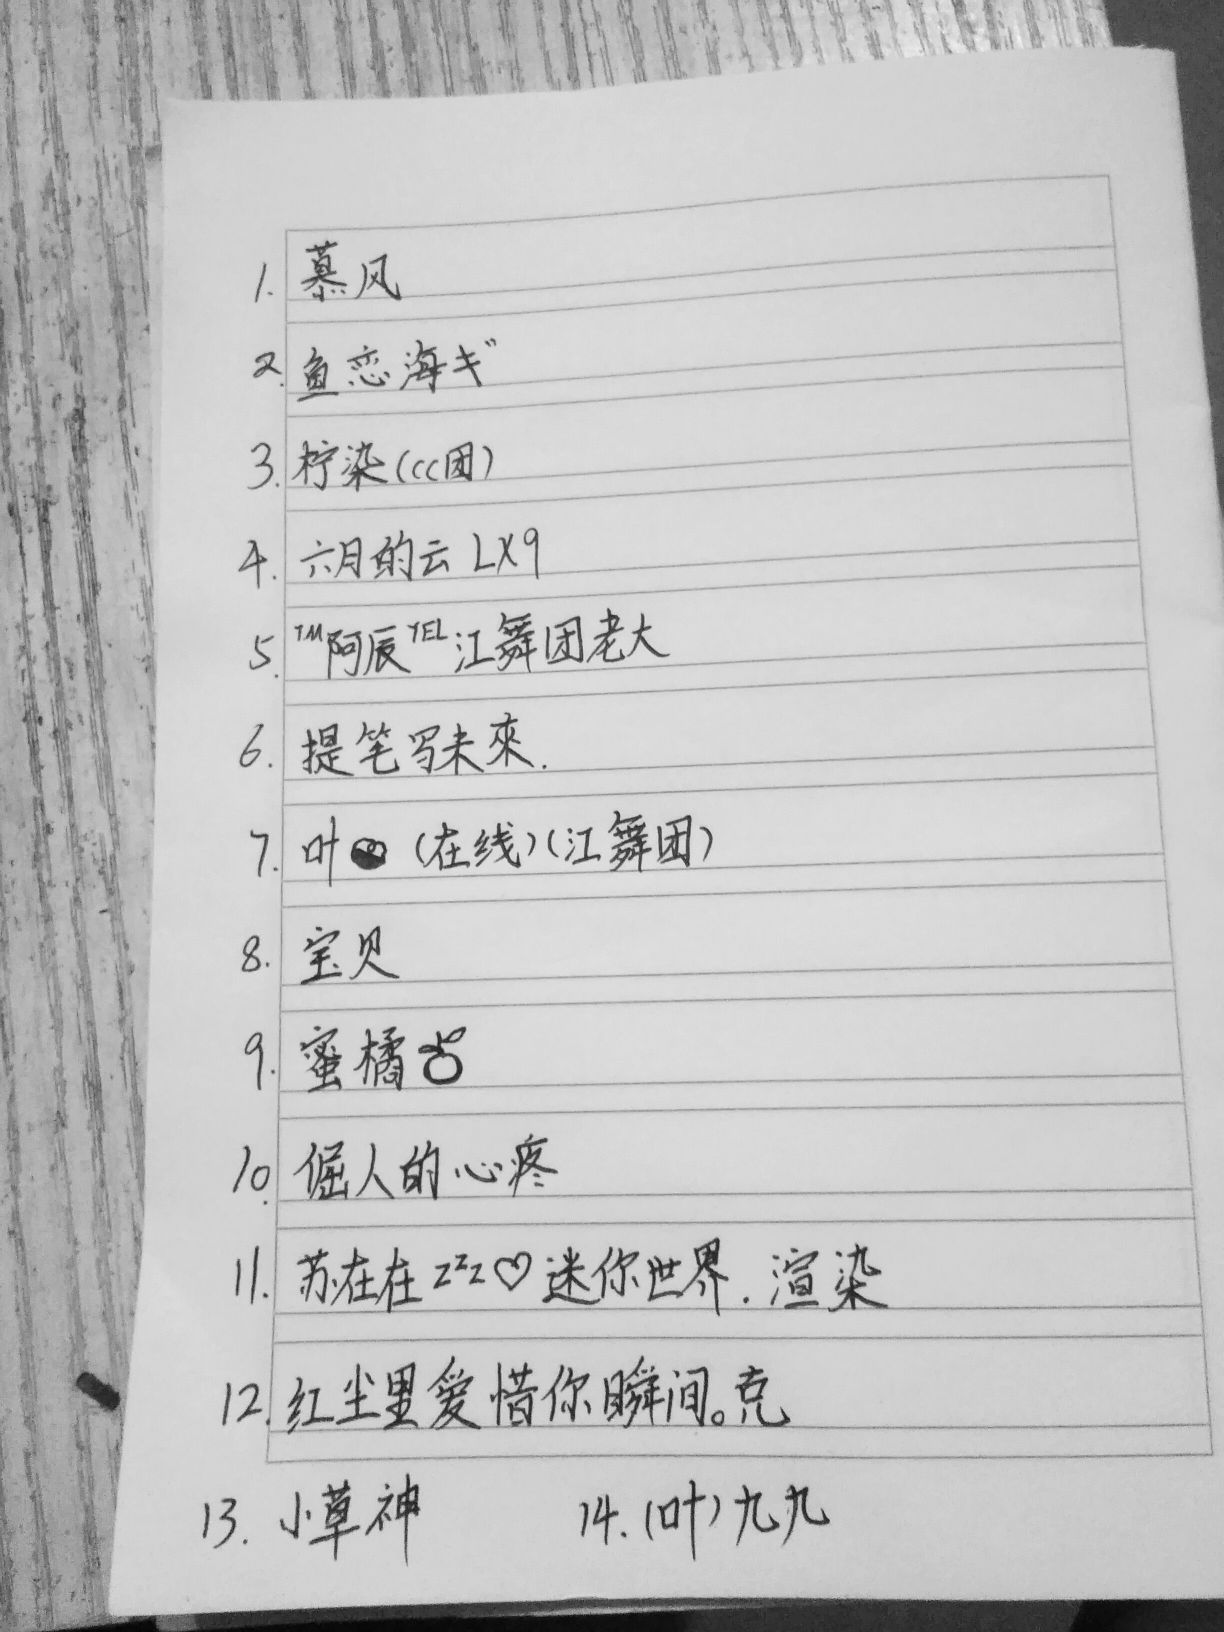 1. 慕风
2. 鱼恋海ギ
3. 柠染(ccc团)
4. 六月的云 LX9
5. TM阿辰TEL江舞团老大
6. 提笔写未來.
7. 叶 (在线)(江舞团)
8. 宝贝
9. 蜜橘
10. 倔人的心疼
11. 苏在在 zzz♡迷你世界. 渲染
12. 红尘里爱惜你瞬间。克
13. 小草神 14. (叶)九九